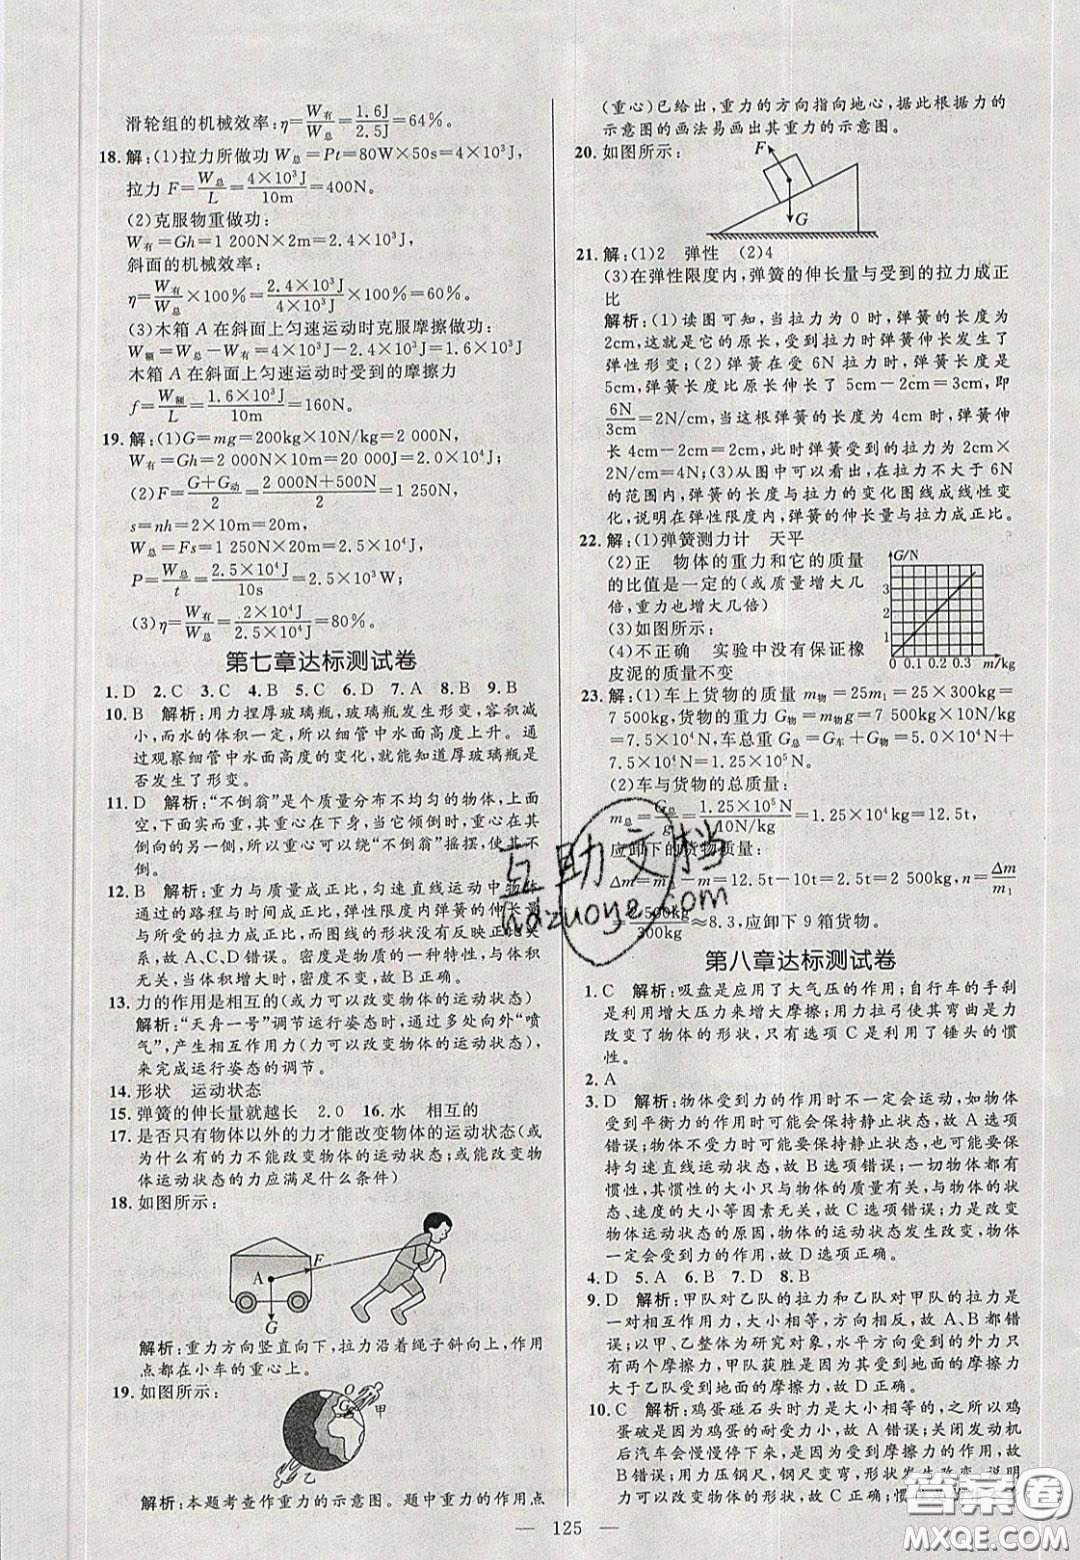 滑轮组的机械效率:η=W有/W总=1.6J/2.5J=64%。
18.解:(1)拉力所做功 W总=Pt=80W×50s=4×10³J,
拉力 F=W总/L=4×10³J/10m=400N。
(2)克服物重做功:
W有=Gh=1 200N×2m=2.4×10³J,
斜面的机械效率:
η=W有/W总×100%=2.4×10³J/4×10³J×100%=60%。
(3)木箱 A 在斜面上匀速运动时克服摩擦做功:
W额=W总-W有=4×10³J-2.4×10³J=1.6×10³J
木箱 A 在斜面上匀速运动时受到的摩擦力
f=W额/L=1.6×10³J/10m=160N。
19.解:(1)G=mg=200kg×10N/kg=2 000N,
W有=Gh=2 000N×10m=20 000J=2.0×10⁴J
(2)F=G+G动/2=2 000N+500N/2=1 250N,
s=nh=2×10m=20m,
W总=Fs=1 250N×20m=2.5×10⁴J,
P=W总/t=2.5×10⁴J/10s=2.5×10³W
(3)η=W有/W总=2×10⁴J/2.5×10⁴J=80%。
第七章达标测试卷
1.D 2.C 3.C 4.B 5.C 6.D 7.A 8.B 9.B
10.B 解析:用力捏厚玻璃瓶,玻璃瓶发生形变,容积减
小,而水的体积一定,所以细管中水面高度上升。通
过观察细管中水面高度的变化,就能知道厚玻璃瓶是
否发生了形变。
11.D 解析:“不倒翁”是个质量分布不均匀的物体,上面
空,下面实而重,其重心在下身,当它倾倒时,重心在其
倒向的另一侧,所以重心可以绕“不倒翁”摇摆,使其不
倒。
12.B 解析:重力与质量成正比,匀速直线运动中物体
通过的路程与时间成正比,弹性限度内弹簧的伸长量
与所受的拉力成正比,图线都是过原点的倾斜的直
线,故 A、C、D 错误。密度是物质的特性,与质量、体积
无关,当体积增大时,密度不变,故 B 正确。
13.力的作用是相互的(或力可以改变物体的运动状态)
解析:“天舟一号”调节运行姿态时,通过多处向外“喷
气”,产生相互作用力(力可以改变物体的运动状态),
来完成运行姿态的调节。
14.形状 运动状态
15.弹簧的伸长量就越长 2.0 16.水 相互的
17.是否只有物体以外的力才能改变物体的运动状态(或
为什么有的力不能改变物体的运动状态;或能改变物
体运动状态的力应满足什么条件)
18.如图所示:
F
A
G
解析:重力方向竖直向下,拉力沿着绳子斜向上,作用
点都在小车的重心上。
19.如图所示:
O
甲
乙
解析:本题考查作重力的示意图。题中重力的作用点
(重心)已给出,重力的方向指向地心,据此根据力的
示意图的画法易画出其重力的示意图。
20.如图所示:
F
G
21.解:(1)2 弹性 (2)4
(3)在弹性限度内,弹簧的伸长量与受到的拉力成正
比
解析:(1)读图可知,当拉力为 0 时,弹簧的长度为
2cm,这就是它的原长,受到拉力时弹簧伸长发生了
弹性形变;(2)弹簧在受 6N 拉力时,弹簧的长度是
5cm,弹簧长度比原长伸长了 5cm-2cm=3cm,即
6N/3cm=2N/cm,当这根弹簧的长度为 4cm 时,弹簧伸长
4cm-2cm=2cm,此时弹簧受到的拉力为 2cm×
2N/cm=4N;(3)从图中可以看出,在拉力不大于 6N
的范围内,弹簧的长度与拉力的变化图线成线性变
化,说明在弹性限度内,弹簧的伸长量与拉力成正比。
22.解:(1)弹簧测力计 天平
(2)正 物体的重力和它的质量
的比值是一定的(或质量增大几
倍,重力也增大几倍)
(3)如图所示:
(4)不正确 实验中没有保证橡
皮泥的质量不变
G/N
3
2
1
0 0.1 0.2 0.3 m/kg
23.解:(1)车上货物的质量 m物=25m₁=25×300kg=
7 500kg,货物的重力 G物=m物g=7 500kg×10N/kg
=7.5×10⁴N,车总重 G总=G车+G物=5.0×10⁴N+
7.5×10⁴N=1.25×10⁵N。
(2)车与货物的总质量:
m总=G总/g=1.25×10⁵N/10N/kg=1.25×10⁴kg=12.5t,
应卸下的货物质量:
Δm=m总-m=12.5t-10t=2.5t=2 500kg,n=Δm/m₁
=2 500kg/300kg≈8.3,应卸下 9 箱货物。
第八章达标测试卷
1.C 解析:吸盘是应用了大气压的作用;自行车的手刹
是利用增大压力来增大摩擦;用力拉弓使其弯曲是力
改变了物体的形状,只有选项 C 是利用了锤头的惯
性。
2.A
3.D 解析:物体受到力的作用时不一定会运动,如物体
受到平衡力的作用时可能会保持静止状态,故 A 选项
错误;物体不受力时可能要保持静止状态,也可能要保
持匀速直线运动状态,故 B 选项错误;一切物体都有
惯性,其惯性的大小只与物体的质量有关,与物体的状
态、速度的大小等因素无关,故 C 选项错误;力是改变
物体运动状态的原因,物体的运动状态发生改变,物体
一定会受到力的作用,故 D 选项正确。
4.D 5.A 6.B 7.D 8.B
9.D 解析:甲队对乙队的拉力和乙队对甲队的拉力是
一对相互作用力,大小相等,方向相反,故 A、B 错误;
若以甲、乙整体为研究对象,水平方向受到的外力只
有两个摩擦力,甲队获胜是因为其受到地面的摩擦力
大于乙队受到地面的摩擦力,故 C 错误,D 正确。
10.C 解析:鸡蛋碰石头时力是大小相等的,之所以鸡
蛋破是因为鸡蛋的耐受力小,故 A 错误;关闭发动机
后汽车会慢慢停下来,是因为受到摩擦力作用,故 B
错误;用力压钢尺,钢尺变弯,形状发生改变,说明力
可以改变物体的形状,故 C 正确;
— 125 —
互助文档
hdzuoye.com
答案圈
MXQE.COM